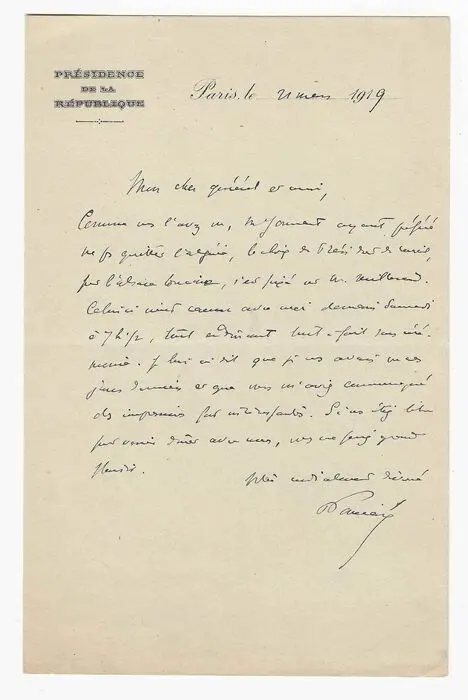 PRÉSIDENCE
DE LA
RÉPUBLIQUE
Paris, le 21 mars 1919
Mon cher général et ami,
Comme vs l'avez vu, M. Jonnart ayant préféré
ne pas quitter l'Algérie, le choix de
pour l'Alsace Lorraine, s'est fixé sur M. Millerand.
Celui-ci vient causer avec moi demain Samedi
à 7 h 1/2, tout en dînant tout à fait sans céré-
monie. Je lui ai dit que je vs avais vu ces
jours derniers et que vous m'aviez communiqué
des impressions fort intéressantes. Si vs étiez libre
pour venir dîner avec nous, vs me feriez grand
plaisir.
Votre cordialement dévoué
Poincaré